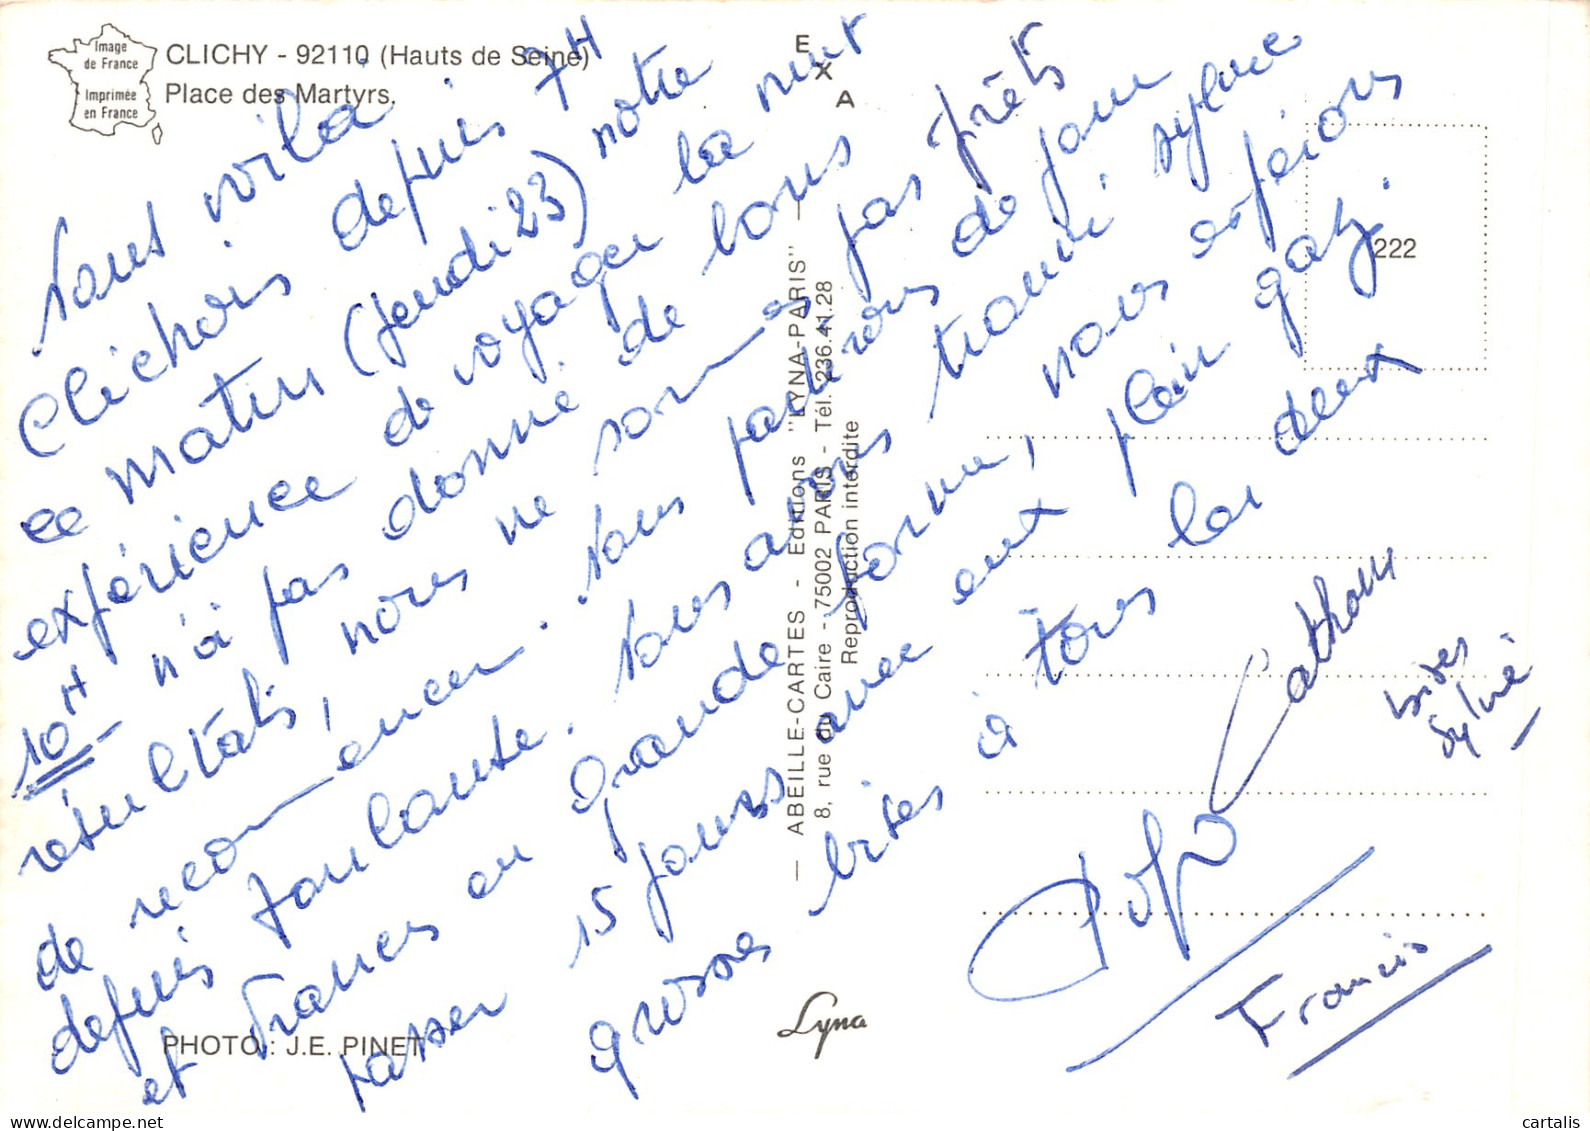 Image
de France
Imprimée
en France
CLICHY - 92110 (Hauts de Seine)
Place des Martyrs.
E
X
A
222
Nous voilà
Clichois depuis 7H
ce matin (jeudi 23) notre
expérience de voyager la nuit
10H n'à pas donné de bons
résultats, nous ne sommes pas prêts
de recommencer. Nous partirons de jour
depuis Nous avons trouvé Sylvie
et Frances en grande forme, nous espérons
passer 15 jours avec eux plein gaz.
grosses bises à tous les deux
Cathou
bises
Sylvie
Francis
— ABEILLE-CARTES - Editions "LYNA-PARIS" —
8, rue du Caire - 75002 PARIS - Tél. 236.41.28
Reproduction interdite
Lyna
PHOTO : J.E. PINET
delcampe.net
cartalis